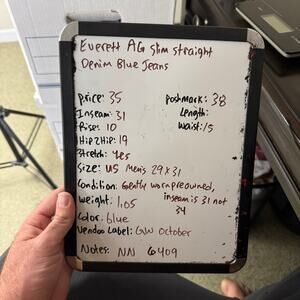 Everett AG slim straight
Denim Blue Jeans
price: 35
poshmark: 38
Inseam: 31
Length:
Rise: 10
waist: 15
Hip 2 hip: 19
Stretch: yes
Size: US Men's 29 x 31
Condition: Gently worn preowned,
inseam is 31 not
34
weight: 1.05
Color: blue
Vendoo Label: GW October
Notes: NN 6409